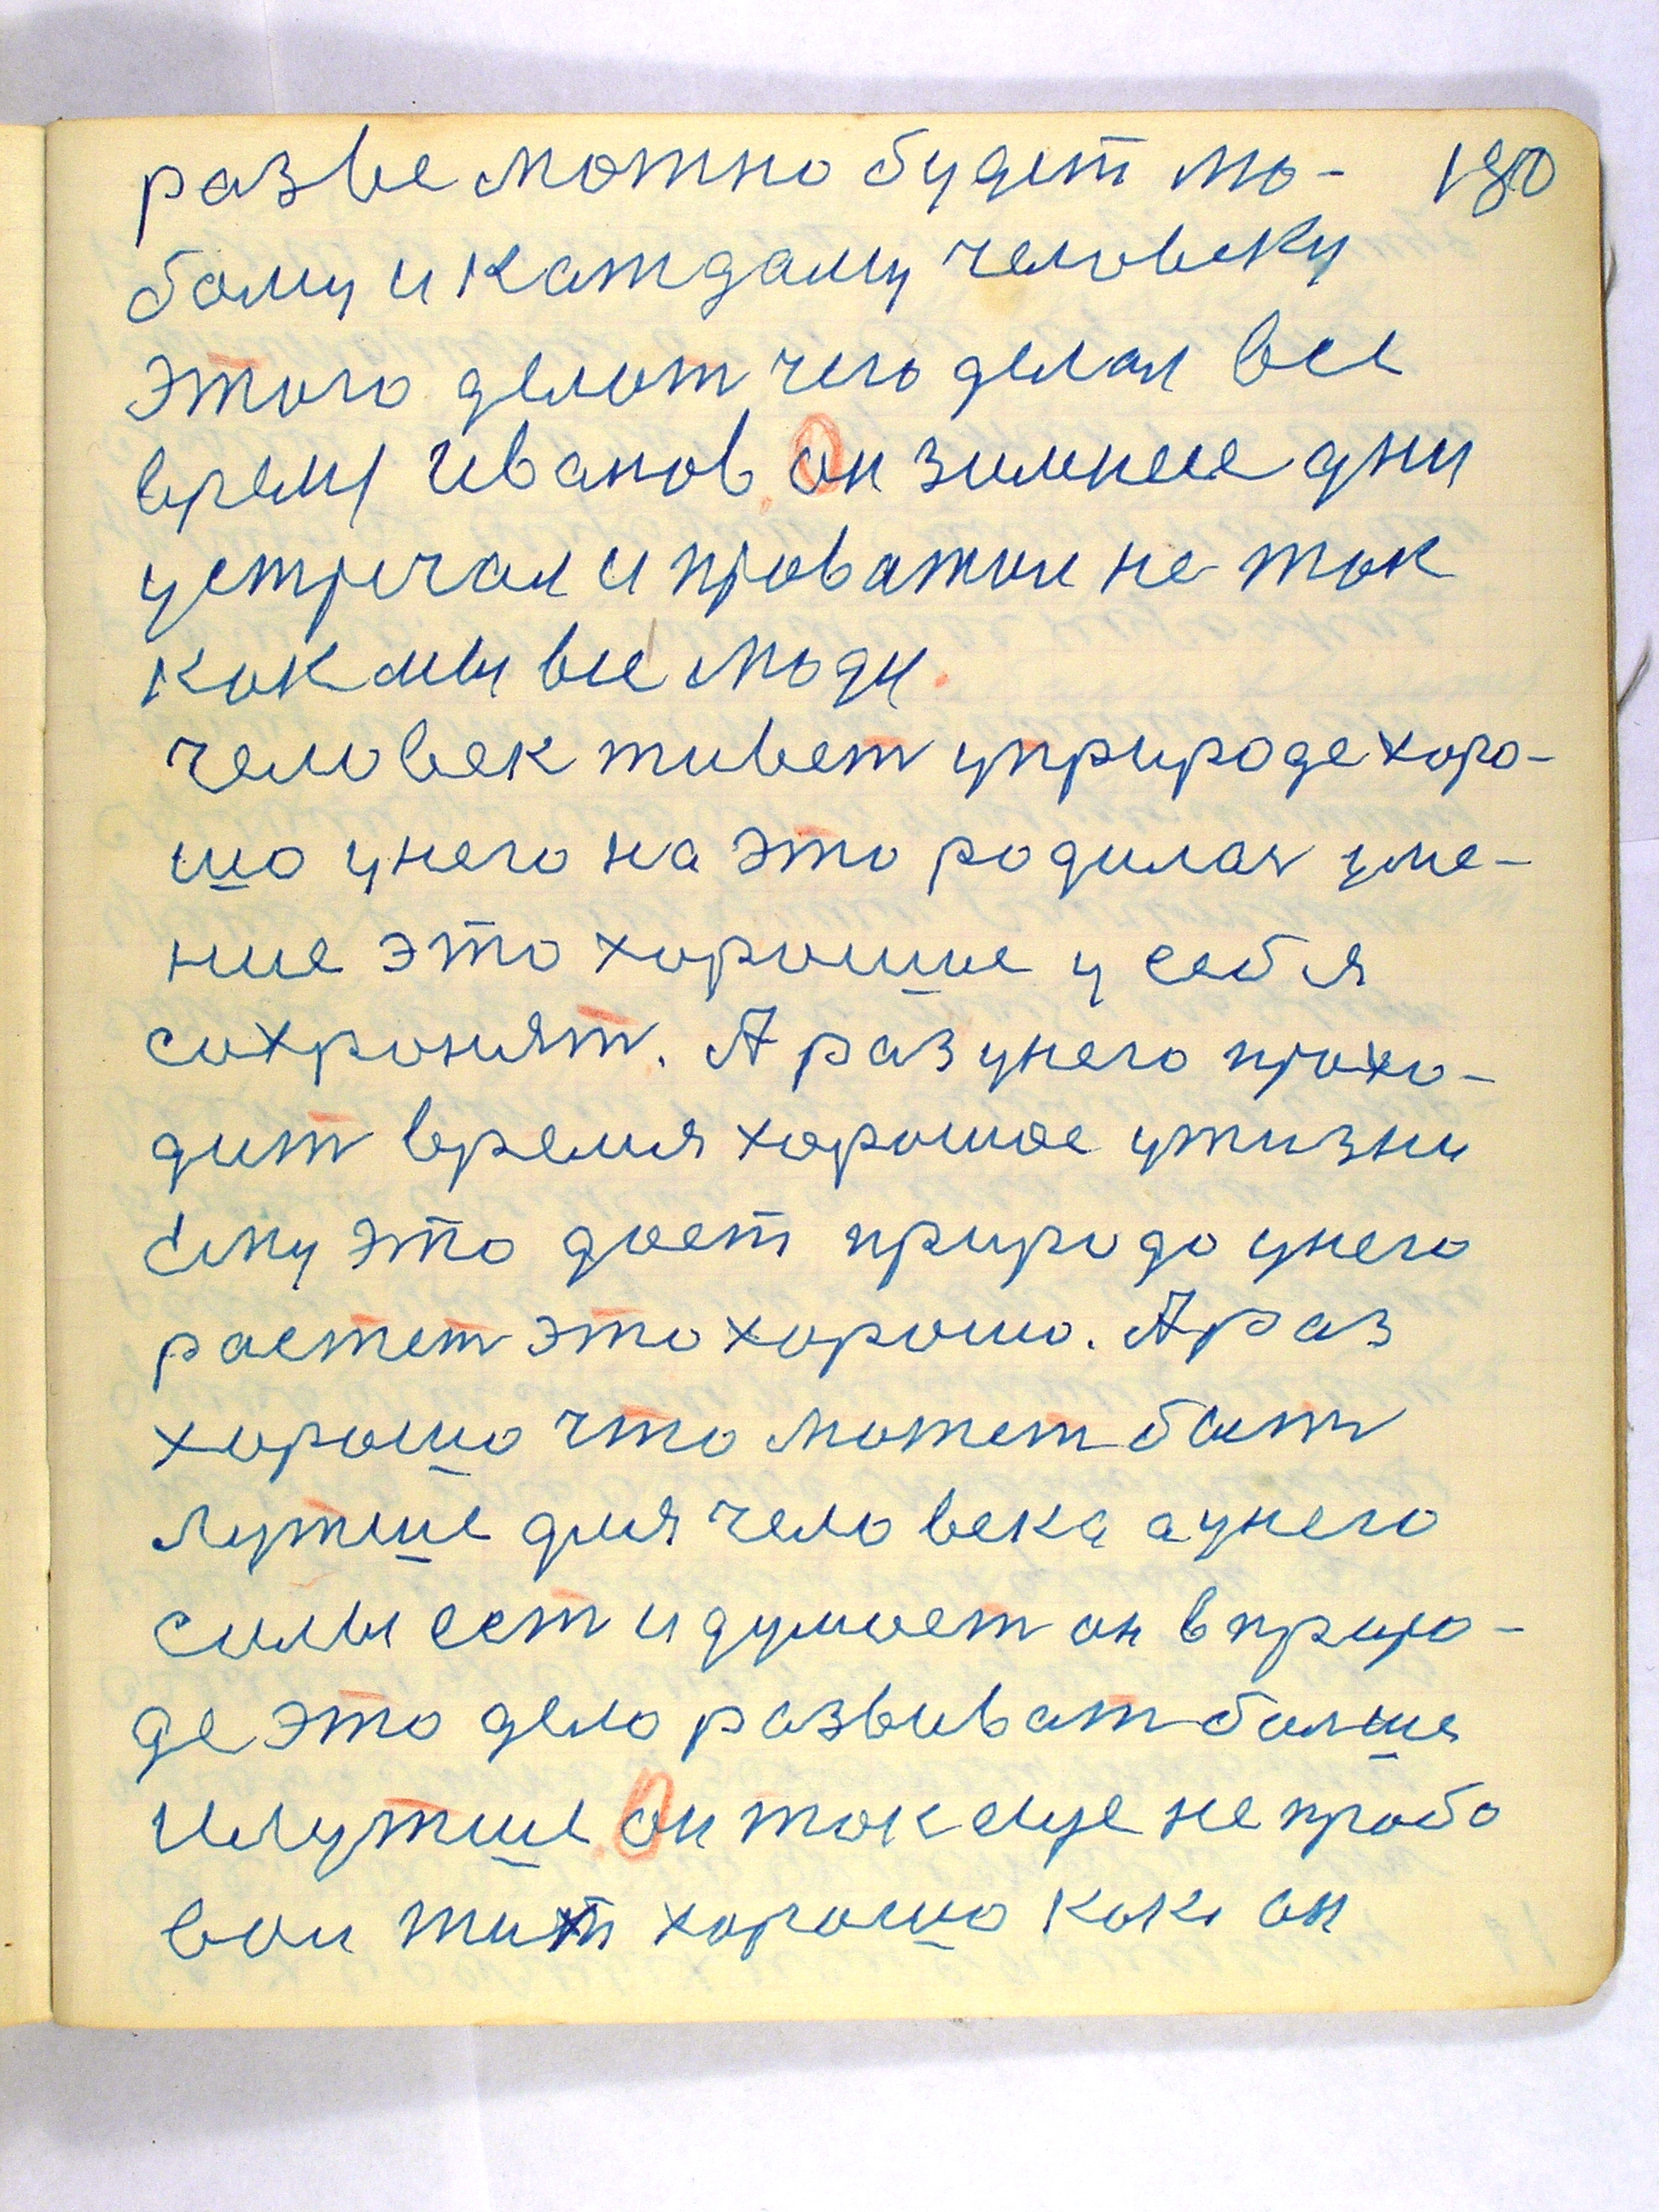 разве можно будет лю- 180
бому и каждаму человеку
этого делат чего делал все
время Иванов. Он зимнее дни
устречал и проважал не так
как мы все люди.
человек живет у природе хоро-
шо у него на это родилася уме-
ние это хорошое у себя
сохронят. А раз у него прохо-
дит время хорошое у жизни
ему это дает природа у него
растет это хорошо. А раз
хорошо что может быт
лутше для человека а у него
силы ест и думает он в приро-
де это дело развиват болше
и лутше. Он так еще не пробо
вал жит хорошо как он